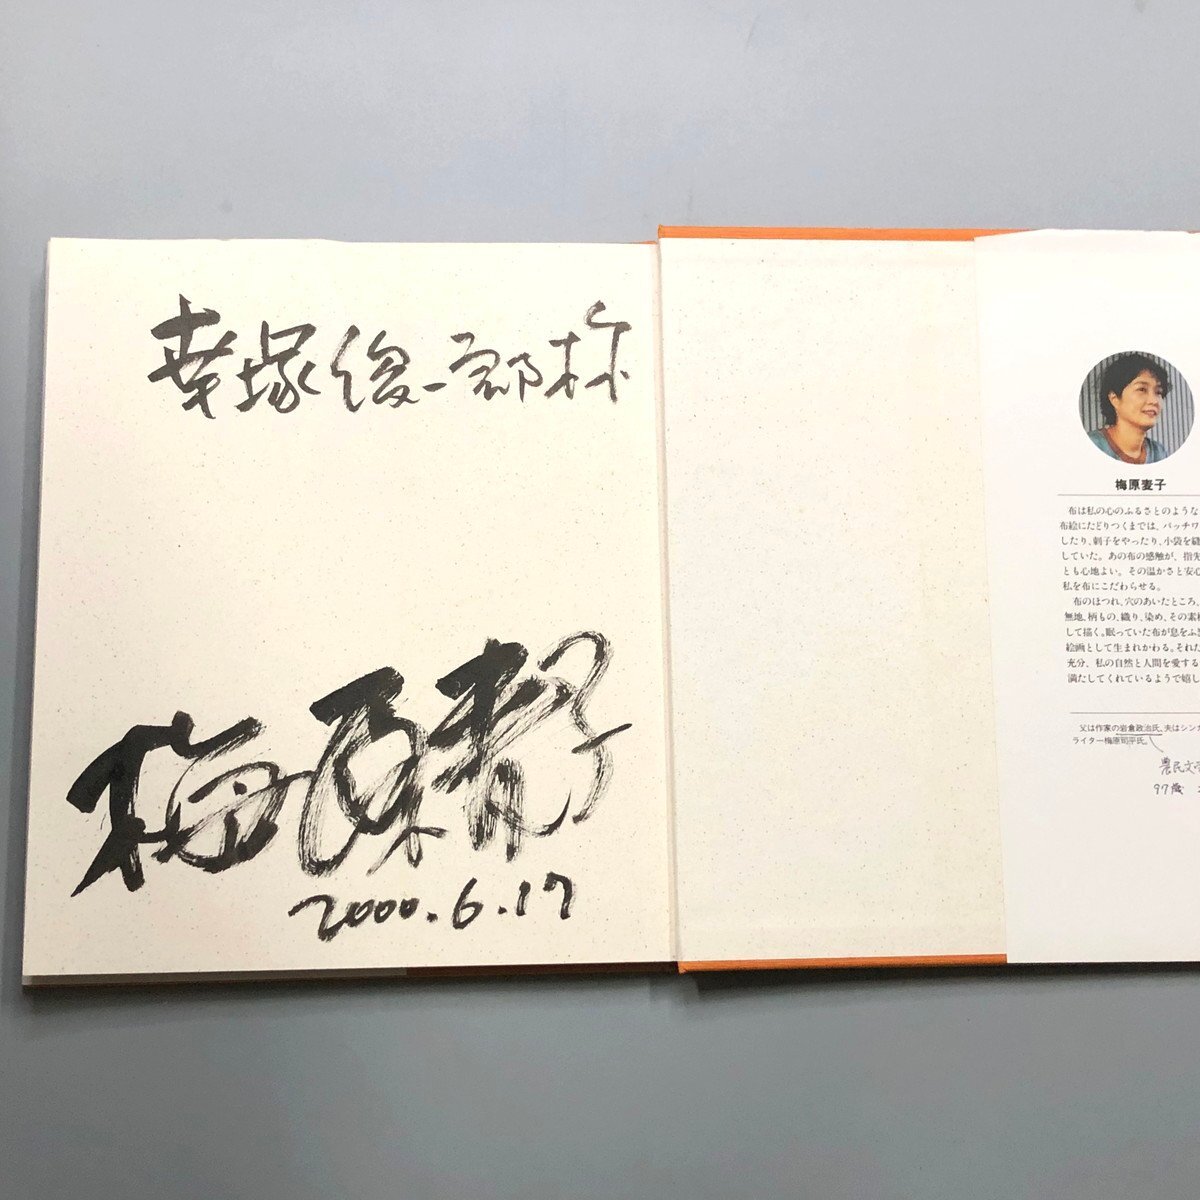 幸塚俊一郎様
梅原麦子
2000.6.17
梅原麦子
布は私の心のふるさとのような
布絵にたどりつくまでは、パッチワ
したり、刺子をやったり、小袋を縫
していた。あの布の感触が、指先
とも心地よい。その温かさと安心
私を布にこだわらせる。
布のほつれ、穴のあいたところ、
無地、柄もの、織り、染め、その素材
して描く。眠っていた布が息をふき
絵画として生まれかわる。それた
充分、私の自然と人間を愛する
満たしてくれているようで嬉し
父は作家の岩倉政治氏、夫はシンガ
ライター梅原司平氏。
農民文学
97歳